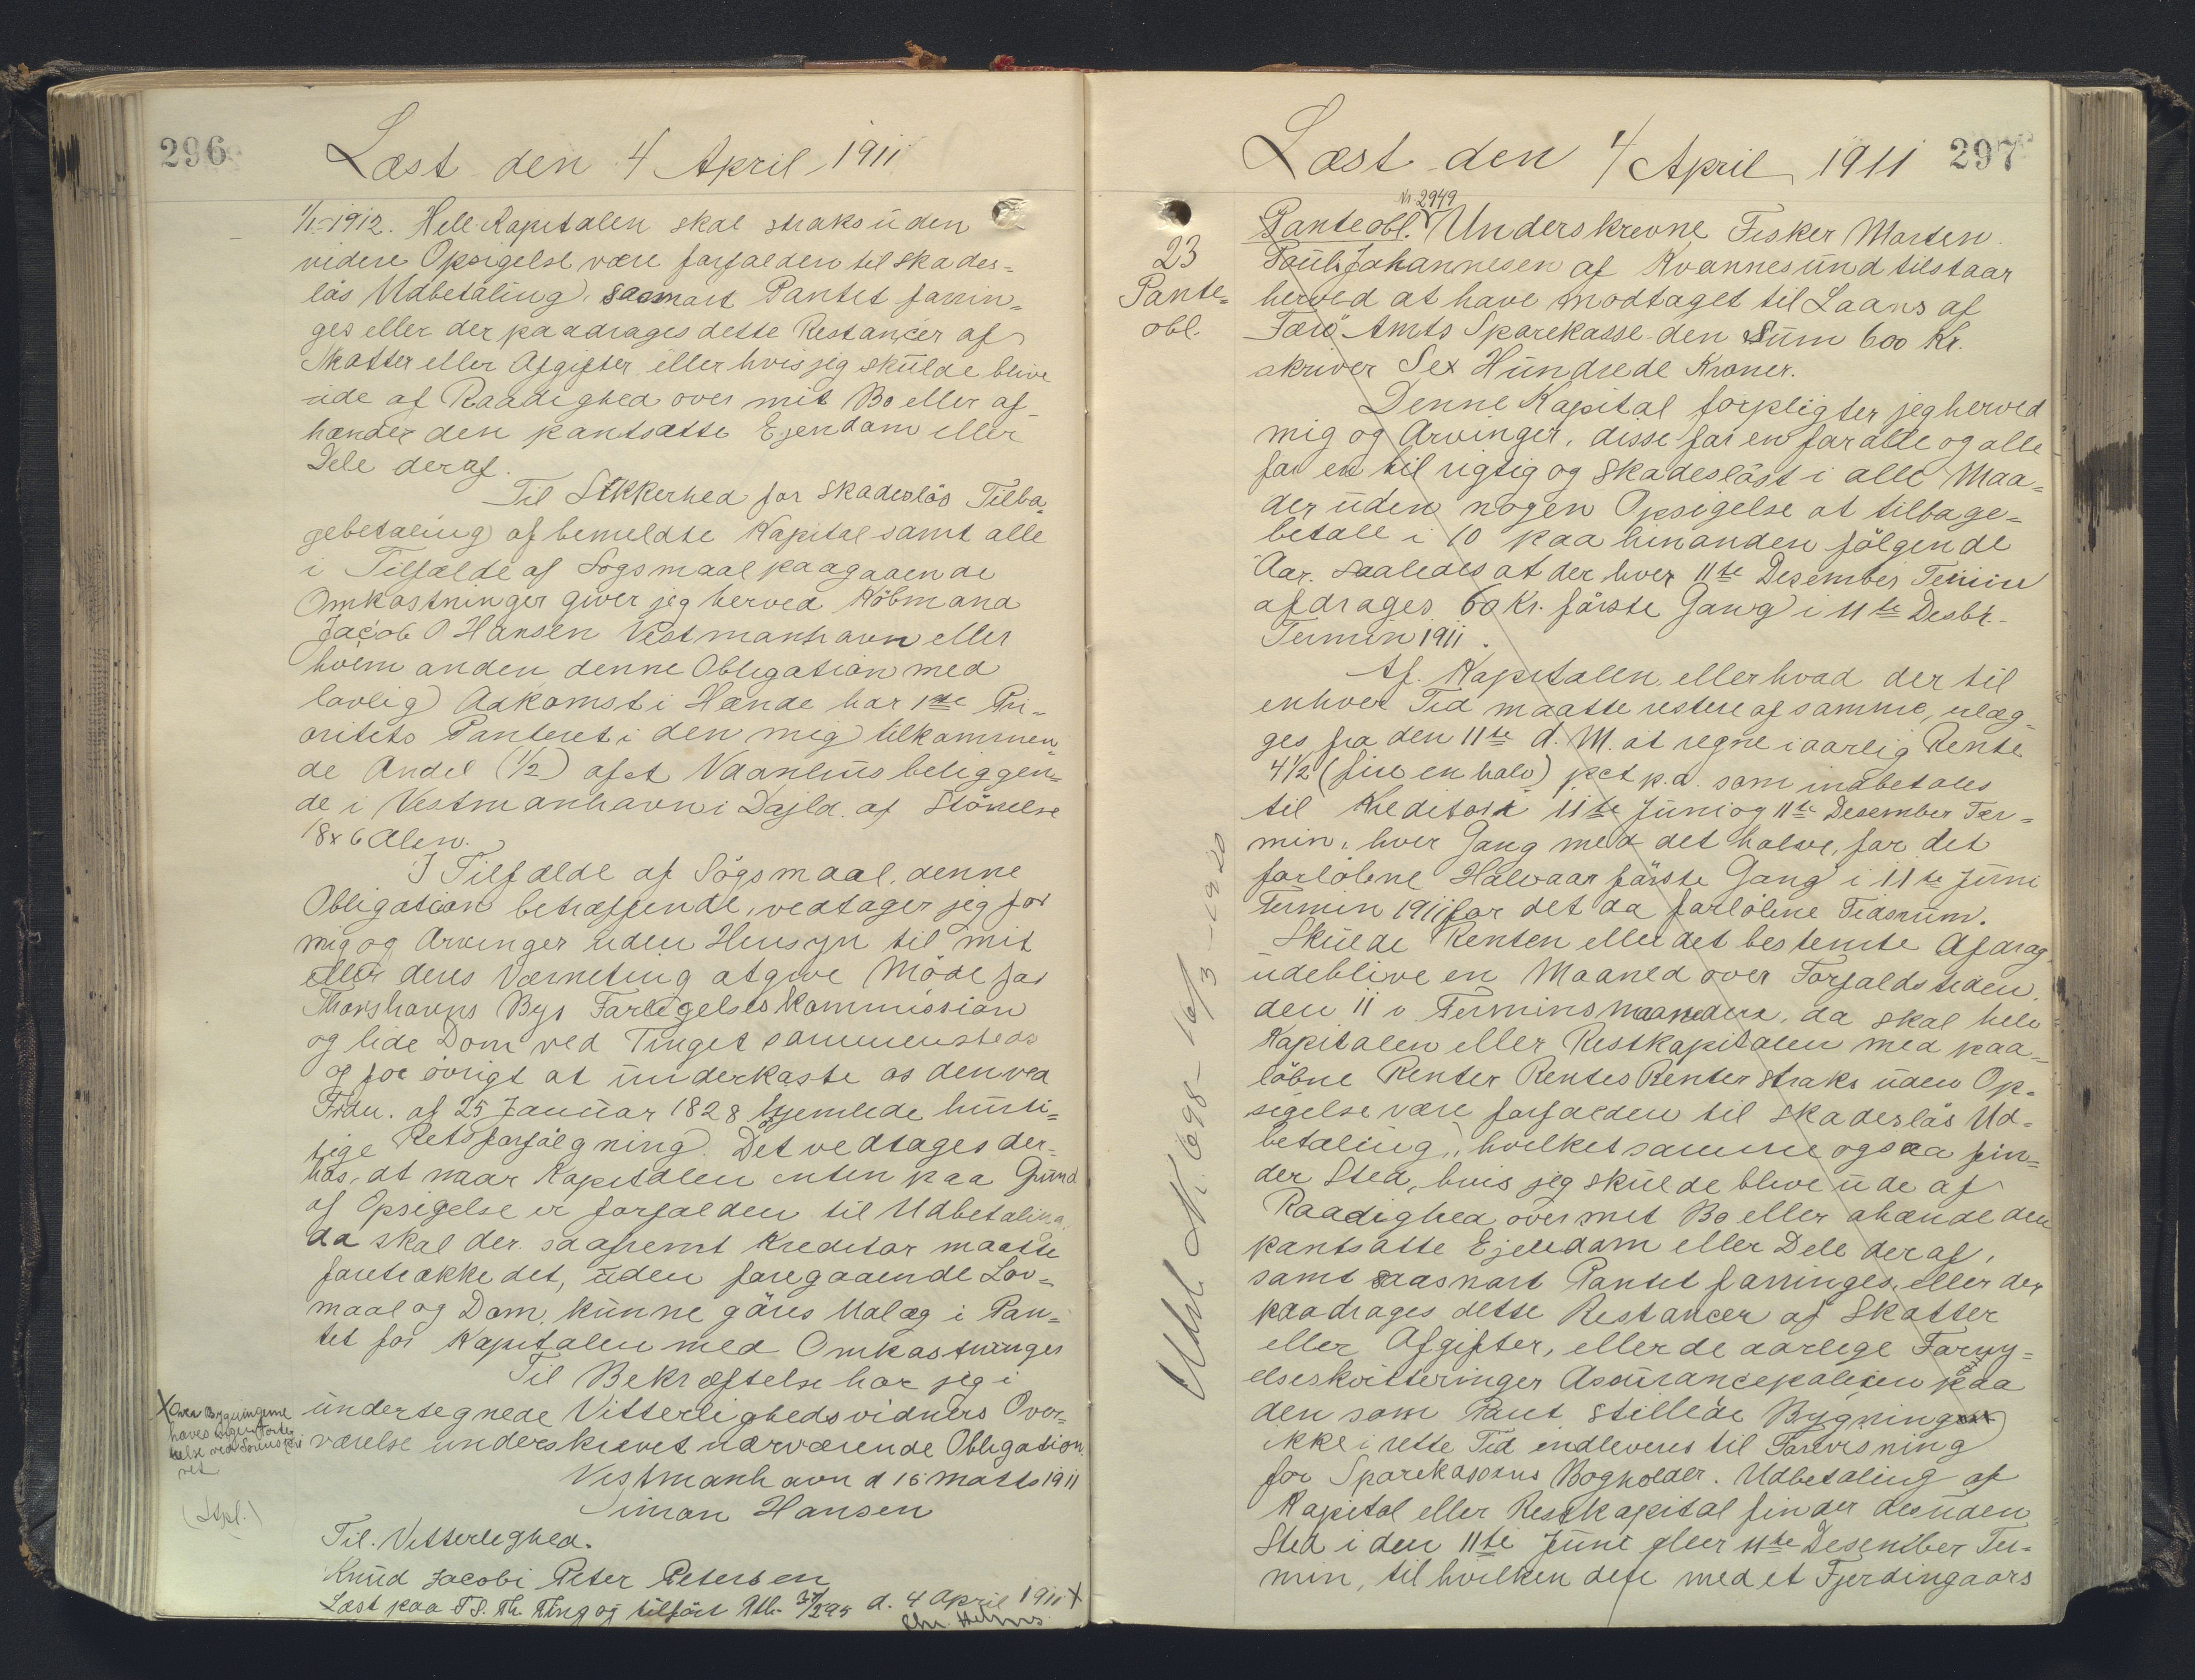 296
Læst den 4 April 1911
1/1-1912. Hele Kapitalen skal straks uden
videre Opsigelse være forfalden til skades=
lös Udbetaling, saasnart Pantet forrin=
ges eller der paadrages dette Restancer af
Skatter eller Afgifter eller hvis jeg skulde blive
ude af Raadighed over mit Bo eller af-
hænder den pantsatte Ejendom eller
Dele deraf.
Til Sikkerhed for skadeslös Tilba=
gebetaling af bemeldte Kapital samt alle
i Tilfælde af Sögsmaal paagaaende
Omkostninger giver jeg herved Köbmand
Jacob O Hansen Vestmanhavn eller
hvem anden denne Obligation med
lovlig Adkomst i Hænde har 1ste Pri=
oritets Panteret i den mig tilkommen=
de Andel (1/2) af et Vaanhus beliggen=
de i Vestmanhavn i Dajld. af Störrelse
18x6 Alen.
I Tilfælde af Sögsmaal, denne
Obligation betræffende, vedtager jeg for
mig og Arvinger uden Hensyn til mit
eller deres Værneting at give Möde for
Thorshavns Bys Forligelseskommission
og lide Dom ved Tinget sammesteds
og for övrigt at underkaste os den ved
Frdn. af 25 Januar 1828 hjemlede hurti=
tige Retsforfölgning. Det vedtages der=
hos, at naar Kapitalen enten paa Grund
af Opsigelse er forfalden til Udbetaling,
da skal der saafremt Kreditor maatte
foretrække det, uden foregaaende Lov=
maal og Dom, kunne göres Udlæg i Pan=
tet for Kapitalen med Omkostninger
Til Bekræftelse har jeg i
undertegnede Vitterlighedsvidners Over=
værelse underskrevet nærværende Obligation.
Vestmanhavn d 16 Marts 1911
Simon Hansen
Til Vitterlighed.
Knud Jacobi Peter Petersen
Læst paa d. 4 April 1911 X
Chr. Helms
X Bygningerne
haves ingen
ved
(Stpl.)
Læst den 4 April 1911
297
23
Pante=
obl.
Nr. 2949
Panteobl. Underskrevne Fisker Morten
Pouli Johannesen af Kvannesund tilstaar
herved at have modtaget til Laans af
Færö Amts Sparekasse den Sum 600 Kr.
skriver Sex Hundrede Kroner.
Denne Kapital forpligter jeg herved
mig og Arvinger, disse for en for alle og alle
for en til rigtig og skadeslöst i alle Maa=
der uden nogen Opsigelse at tilbage=
betale i 10 paa hinanden fölgende
Aar. saaledes at der hver 11te Desember Termin
afdrages 60 Kr. förste Gang i 11te Desbr.
Termin 1911.
Af Kapitalen eller hvad der til
enhver Tid maatte restere af samme, erlæg=
ges fra den 11te d. M. at regne i aarlig Rente
4 1/2 (fire en halv) pct p.a. som indbetales
til Kreditor i 11te Juni og 11te Desember Ter=
min, hver Gang med det halve, for det
forlöbne Halvaar förste Gang i 11te Juni
Termin 1911 for det da forlöbne Tidsrum.
Skulde Renten eller det bestemte Afdrag
udeblive en Maaned over Forfaldstiden,
den 11 i Terminsmaaneden, da skal hele
Kapitalen eller Restkapitalen med paa=
löbne Renter Rentes Renter straks uden Op=
sigelse være forfalden til skadeslös Ud=
betaling, hvilket samme ogsaa fin=
der Sted, hvis jeg skulde blive ude af
Raadighed over mit Bo eller ahænde den
pantsatte Ejendom eller Dele deraf,
samt saasnart Pantet forringes, eller der
paadrages dette Restancer af Skatter
eller Afgifter, eller de aarlege Forny=
elseskvitteringer Assurancepolisen paa
den som Pant stillede Bygning
ikke i rette Tid indleveres til Forevisning
for Sparekassens Bogholder. Udbetaling af
Kapital eller Restkapital finder desuden
Sted i den 11te Juni eller 11te Desember Ter=
min, til hvilken den med et Fjerdingaars
Udsl Nr. 698 - 16/3 - 1920